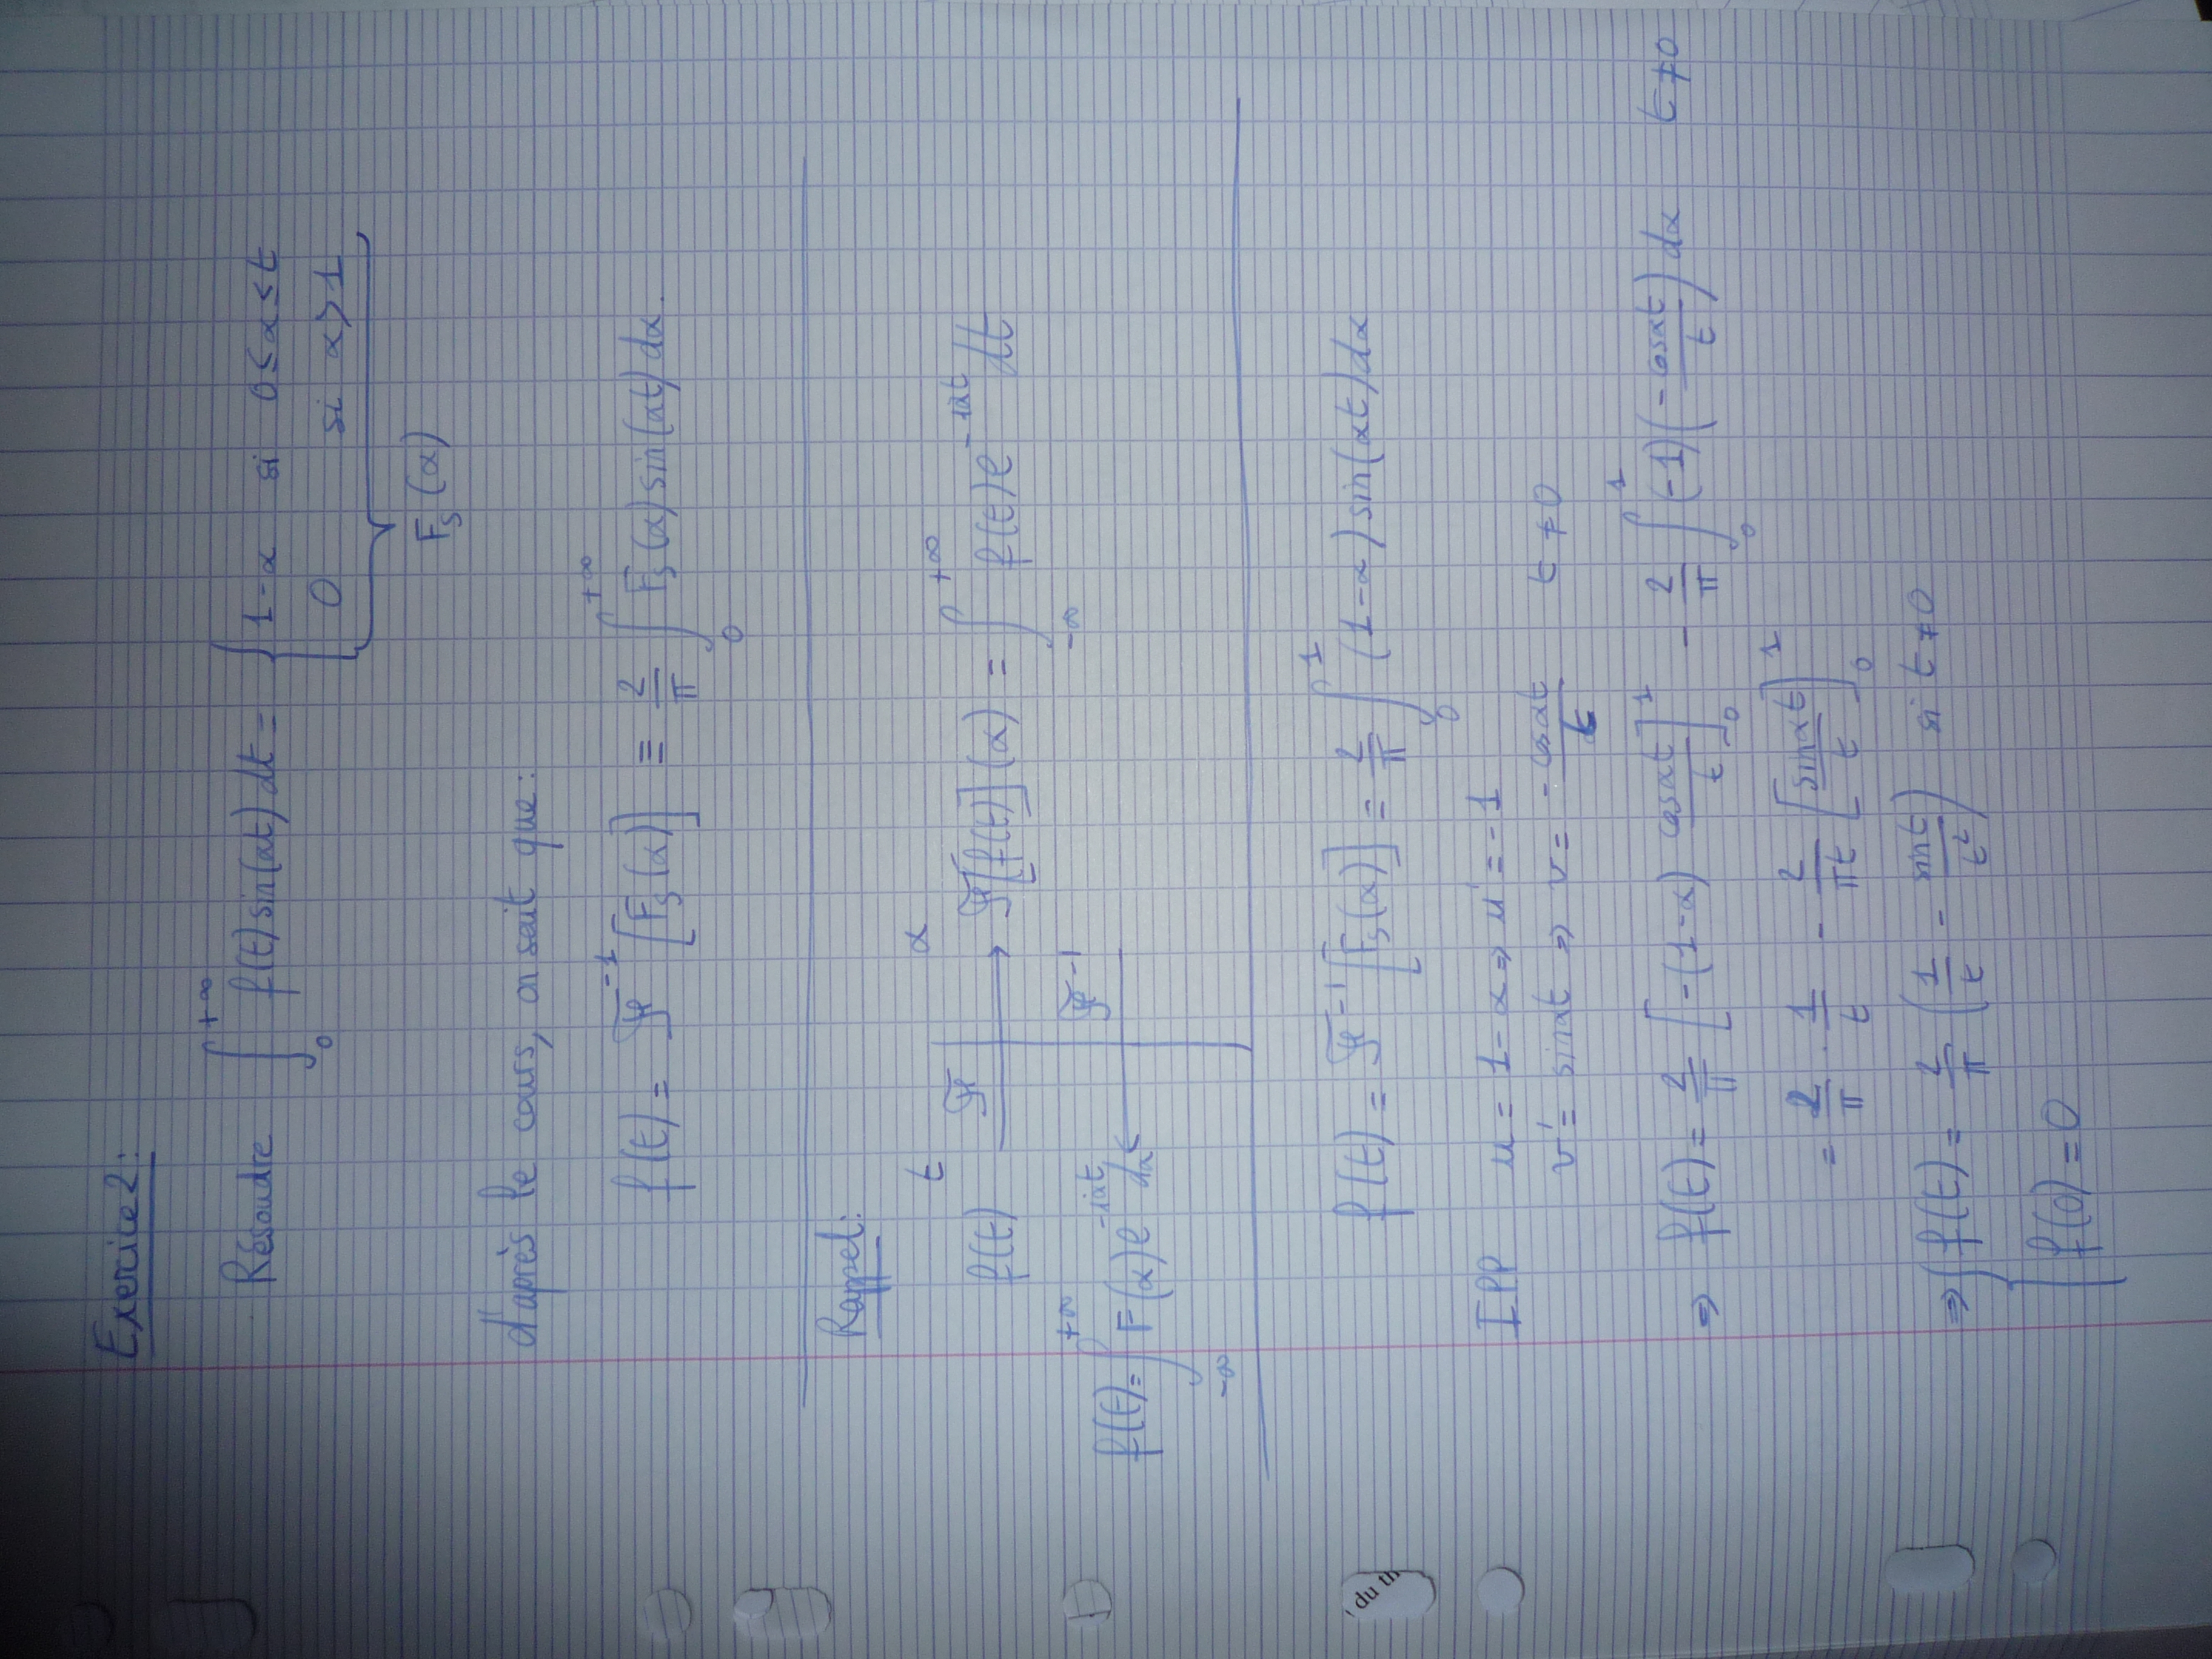 Exercice 2:
Résoudre ∫₀^{+∞} f(t) sin(αt) dt = { 1-α si 0≤α≤t
0 si α>1
F_s(α)
d'après le cours, on sait que:
f(t) = 𝓕^{-1}[F_s(α)] ≡ \frac{2}{π} ∫₀^{+∞} F_s(α) sin(αt) dα.
Rappel:
t α
f(t) 𝓕 → 𝓕[f(t)](α) = ∫_{-∞}^{+∞} f(t) e^{-iαt} dt
f(t) = ∫_{-∞}^{+∞} F(α) e^{-iαt} dα ← 𝓕^{-1}
f(t) = 𝓕^{-1}[F_s(α)] = \frac{2}{π} ∫₀^1 (1-α) sin(αt) dα
IPP u = 1-α ⇒ u' = -1
v' = sinαt ⇒ v = -\frac{cosαt}{t} t≠0
⇒ f(t) = \frac{2}{π} [-(1-α) \frac{cosαt}{t}]_0^1 - \frac{2}{π} ∫₀^1 (-1)(-\frac{cosαt}{t}) dα t≠0
= \frac{2}{π} . \frac{1}{t} - \frac{2}{πt} [\frac{sinαt}{t}]_0^1
⇒ { f(t) = \frac{2}{π} (\frac{1}{t} - \frac{sint}{t^2}) si t≠0
f(0) = 0
' du th